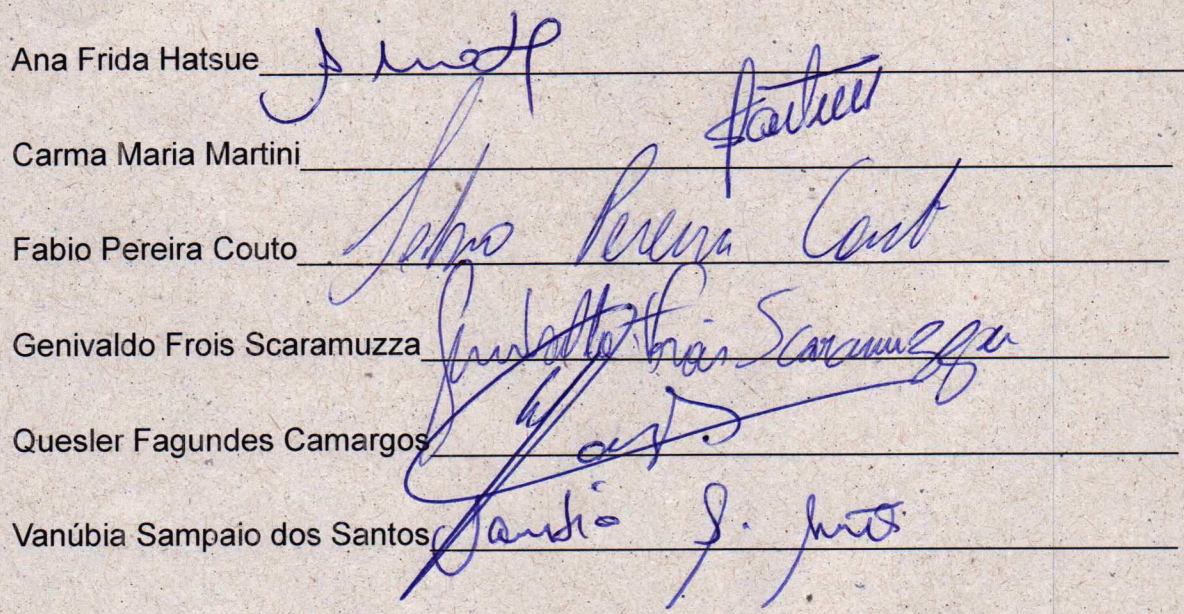 Ana Frida Hatsue
Carma Maria Martini
Fabio Pereira Couto Fabio Pereira Couto
Genivaldo Frois Scaramuzza Genivaldo Frois Scaramuzza
Quesler Fagundes Camargos
Vanúbia Sampaio dos Santos